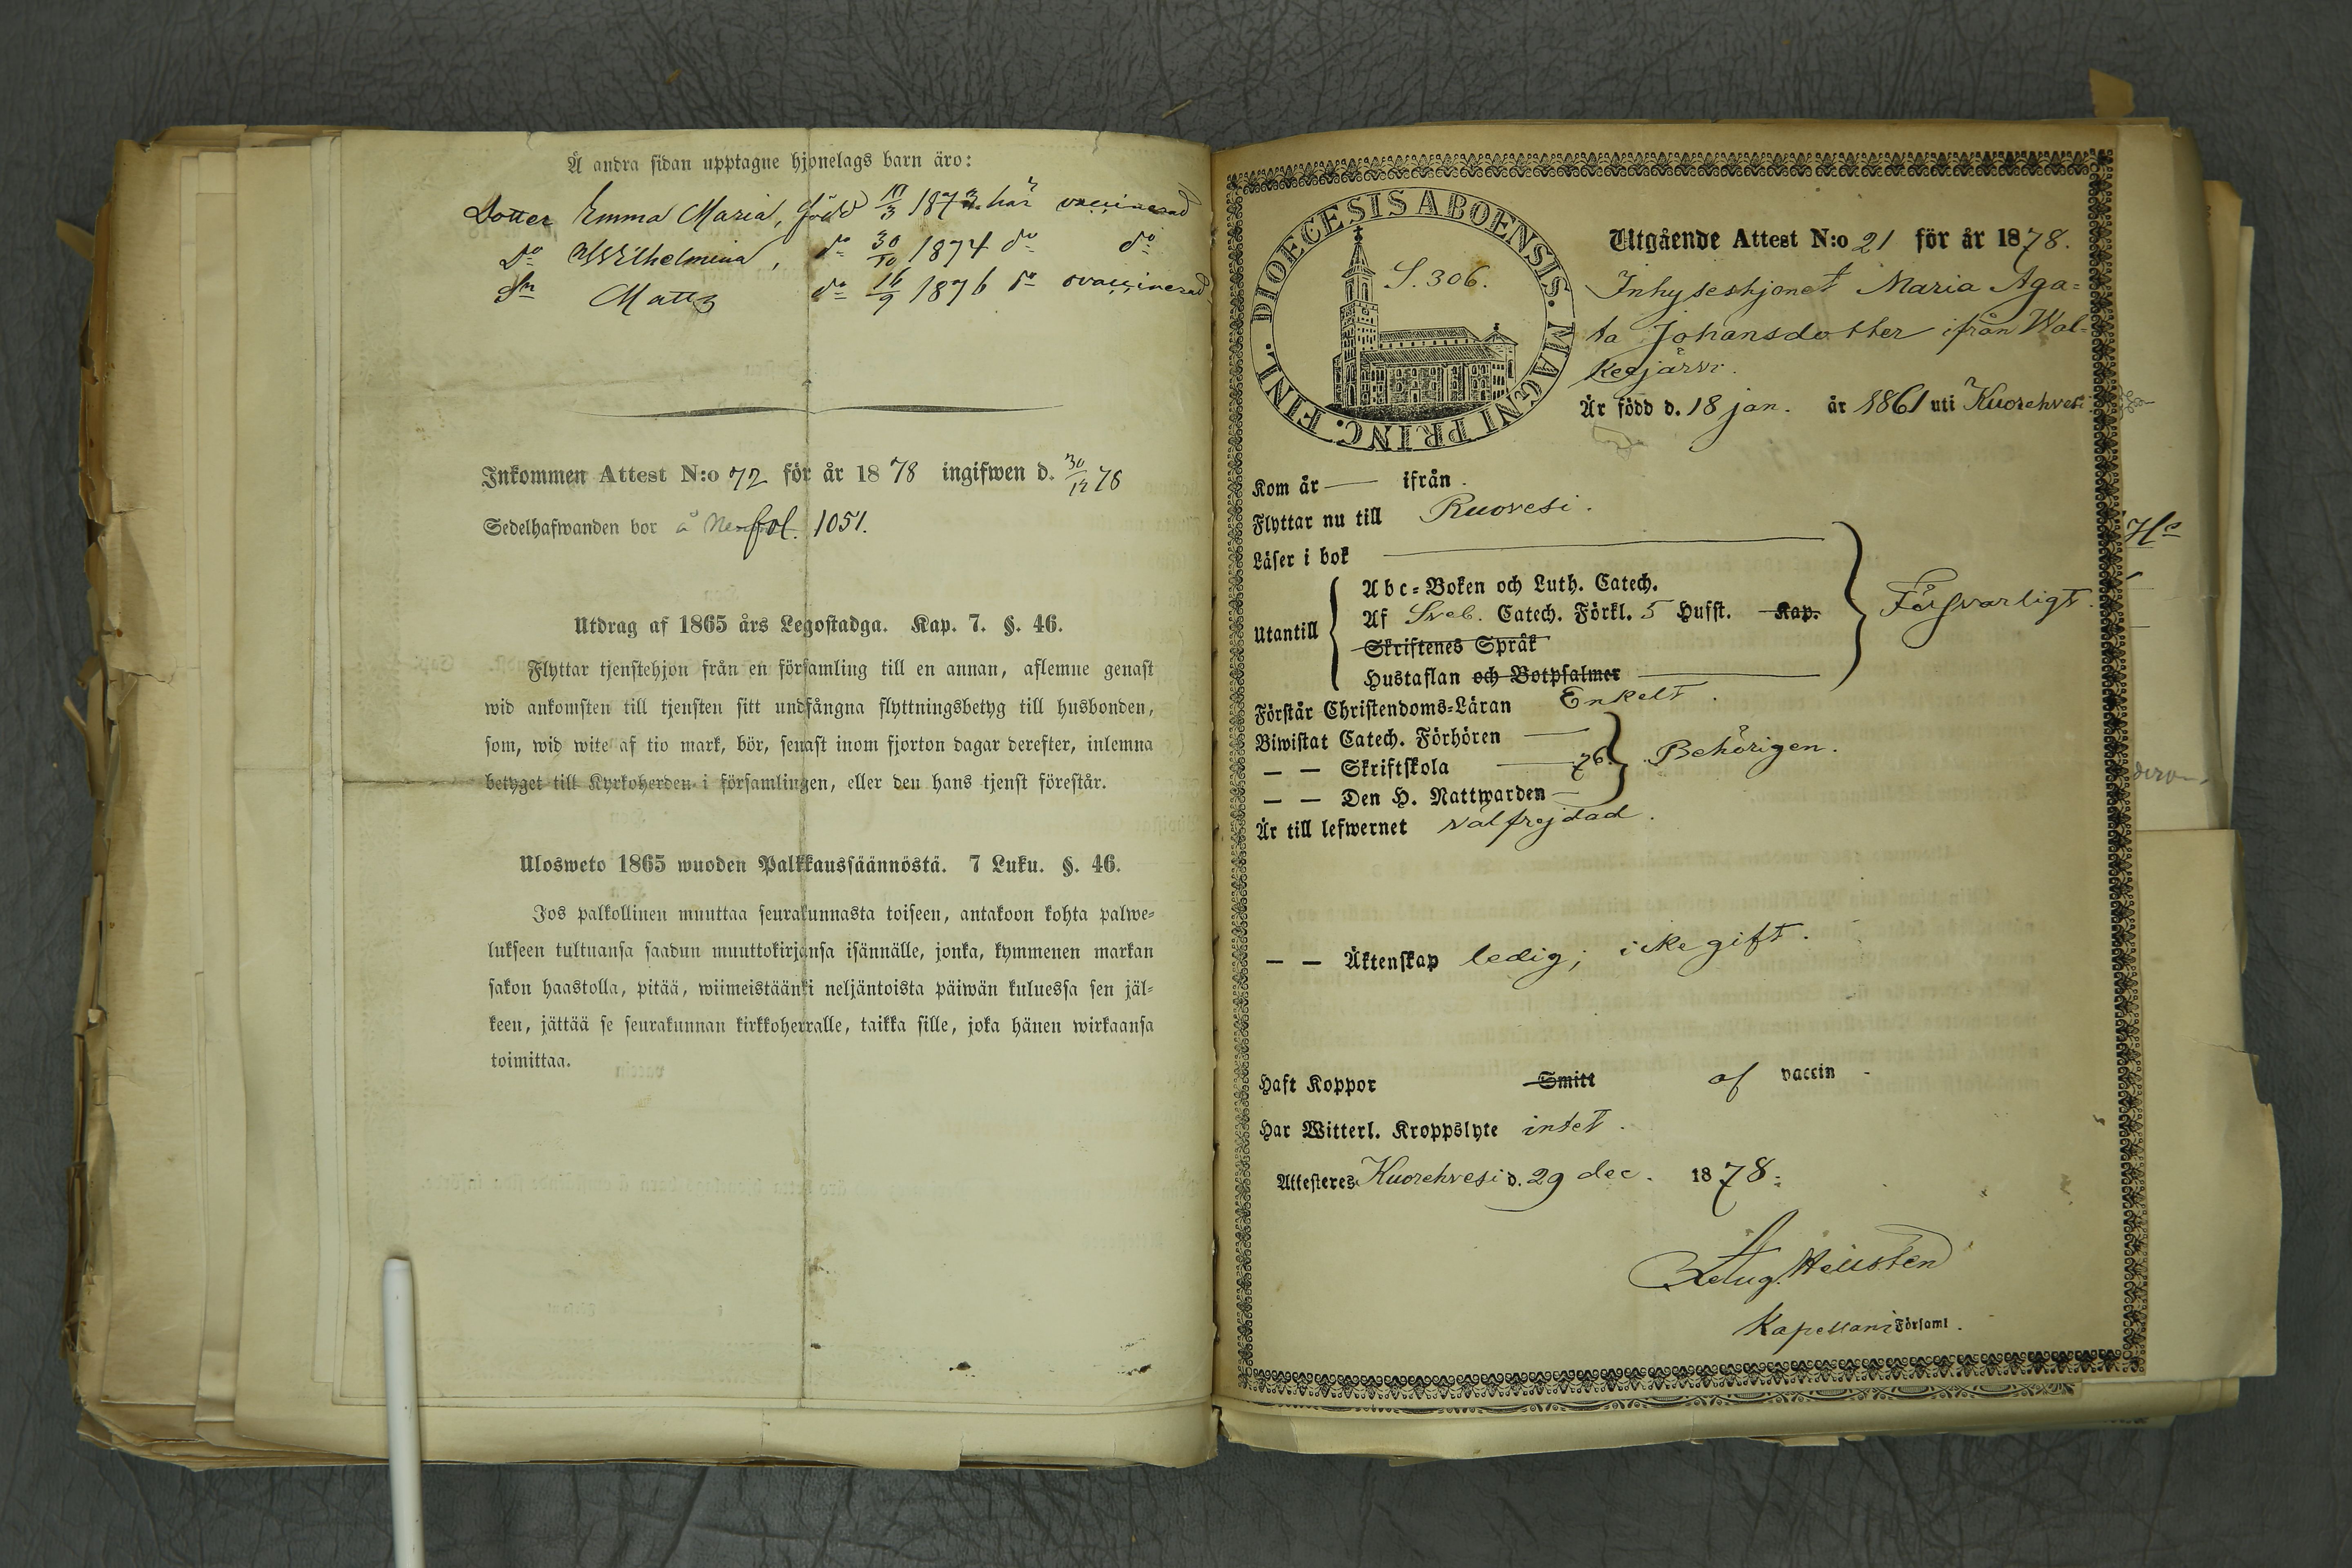 Å andra sidan upptagne hjonelags barn äro:
Dotter Emma Maria, född 19/3 1872 här vaccinerad
Do Wilhelmina, do 30/10 1874 do do
Son Matts do 16/9 1876 do ovaccinerad
Inkommen Attest N:o 72 för år 1878 ingifwen d. 30/12 78
Sedelhafwanden bor å fol. 1051.
Utdrag af 1865 års Legostadga. Kap. 7. §. 46.
Flyttar tjenstehjon från en församling till en annan, aflemne genast
wid ankomsten till tjensten sitt undfångna flyttningsbetyg till husbonden,
som, wid wite af tio mark, bör, senast inom fjorton dagar derefter, inlemna
betyget till Kyrkoherden i församlingen, eller den hans tjenst förestår.
Ulosweto 1865 wuoden Palkkaussäännöstä. 7 Luku. §. 46.
Jos palkollinen muuttaa seurakunnasta toiseen, antakoon kohta palwe-
lukseen tultuansa saadun muuttokirjansa isännälle, jonka, kymmenen markan
sakon haastolla, pitää, wiimeistäänki neljäntoista päiwän kuluessa sen jäl-
keen, jättää se seurakunnan kirkkoherralle, taikka sille, joka hänen wirkaansa
toimittaa.
DIOECESIS ABOENSIS. MAGNI PRINC. FINL.
S. 306.
Utgående Attest N:o 21 för år 1878.
Inhyseshjonet Maria Aga-
ta Johansdotter ifrån Wal-
keejärvi.
Är född d. 18 jan. år 1861 uti Kuorehvesi
Kom år — ifrån
Flyttar nu till Ruovesi.
Läser i bok
Utantill
Abc-Boken och Luth. Catech.
Af Sveb. Catech. Förkl. 5 Hufst. Kap.
Skriftenes Språk
Hustaflan och Botpsalmer
Försvarligt.
Förstår Christendoms-Läran Enkelt.
Biwistat Catech. Förhören —
— — Skriftskola — 76.
— — Den H. Nattwarden —
Behörigen.
Är till lefwernet välfrejdad.
— — Äktenskap ledig; icke gift.
Haft Koppor Smitt af vaccin
Har Witterl. Kroppslyte intet.
Attesteres Kuorehvesi d. 29 dec. 1878.
Hellsten
Kapellans Församl.